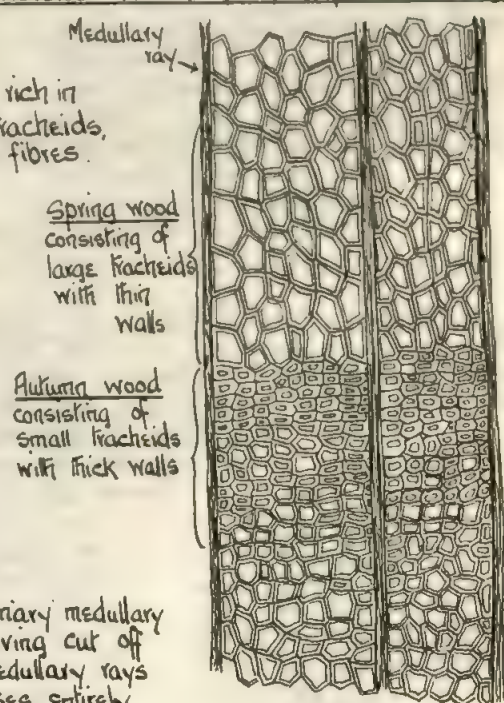 Medullary
ray
rich in
racheids,
fibres.
Spring wood
consisting of
large tracheids
with thin
walls
Autumn wood
consisting of
small tracheids
with thick walls
mary medullary
ving cut off
edullary rays
ses entirely